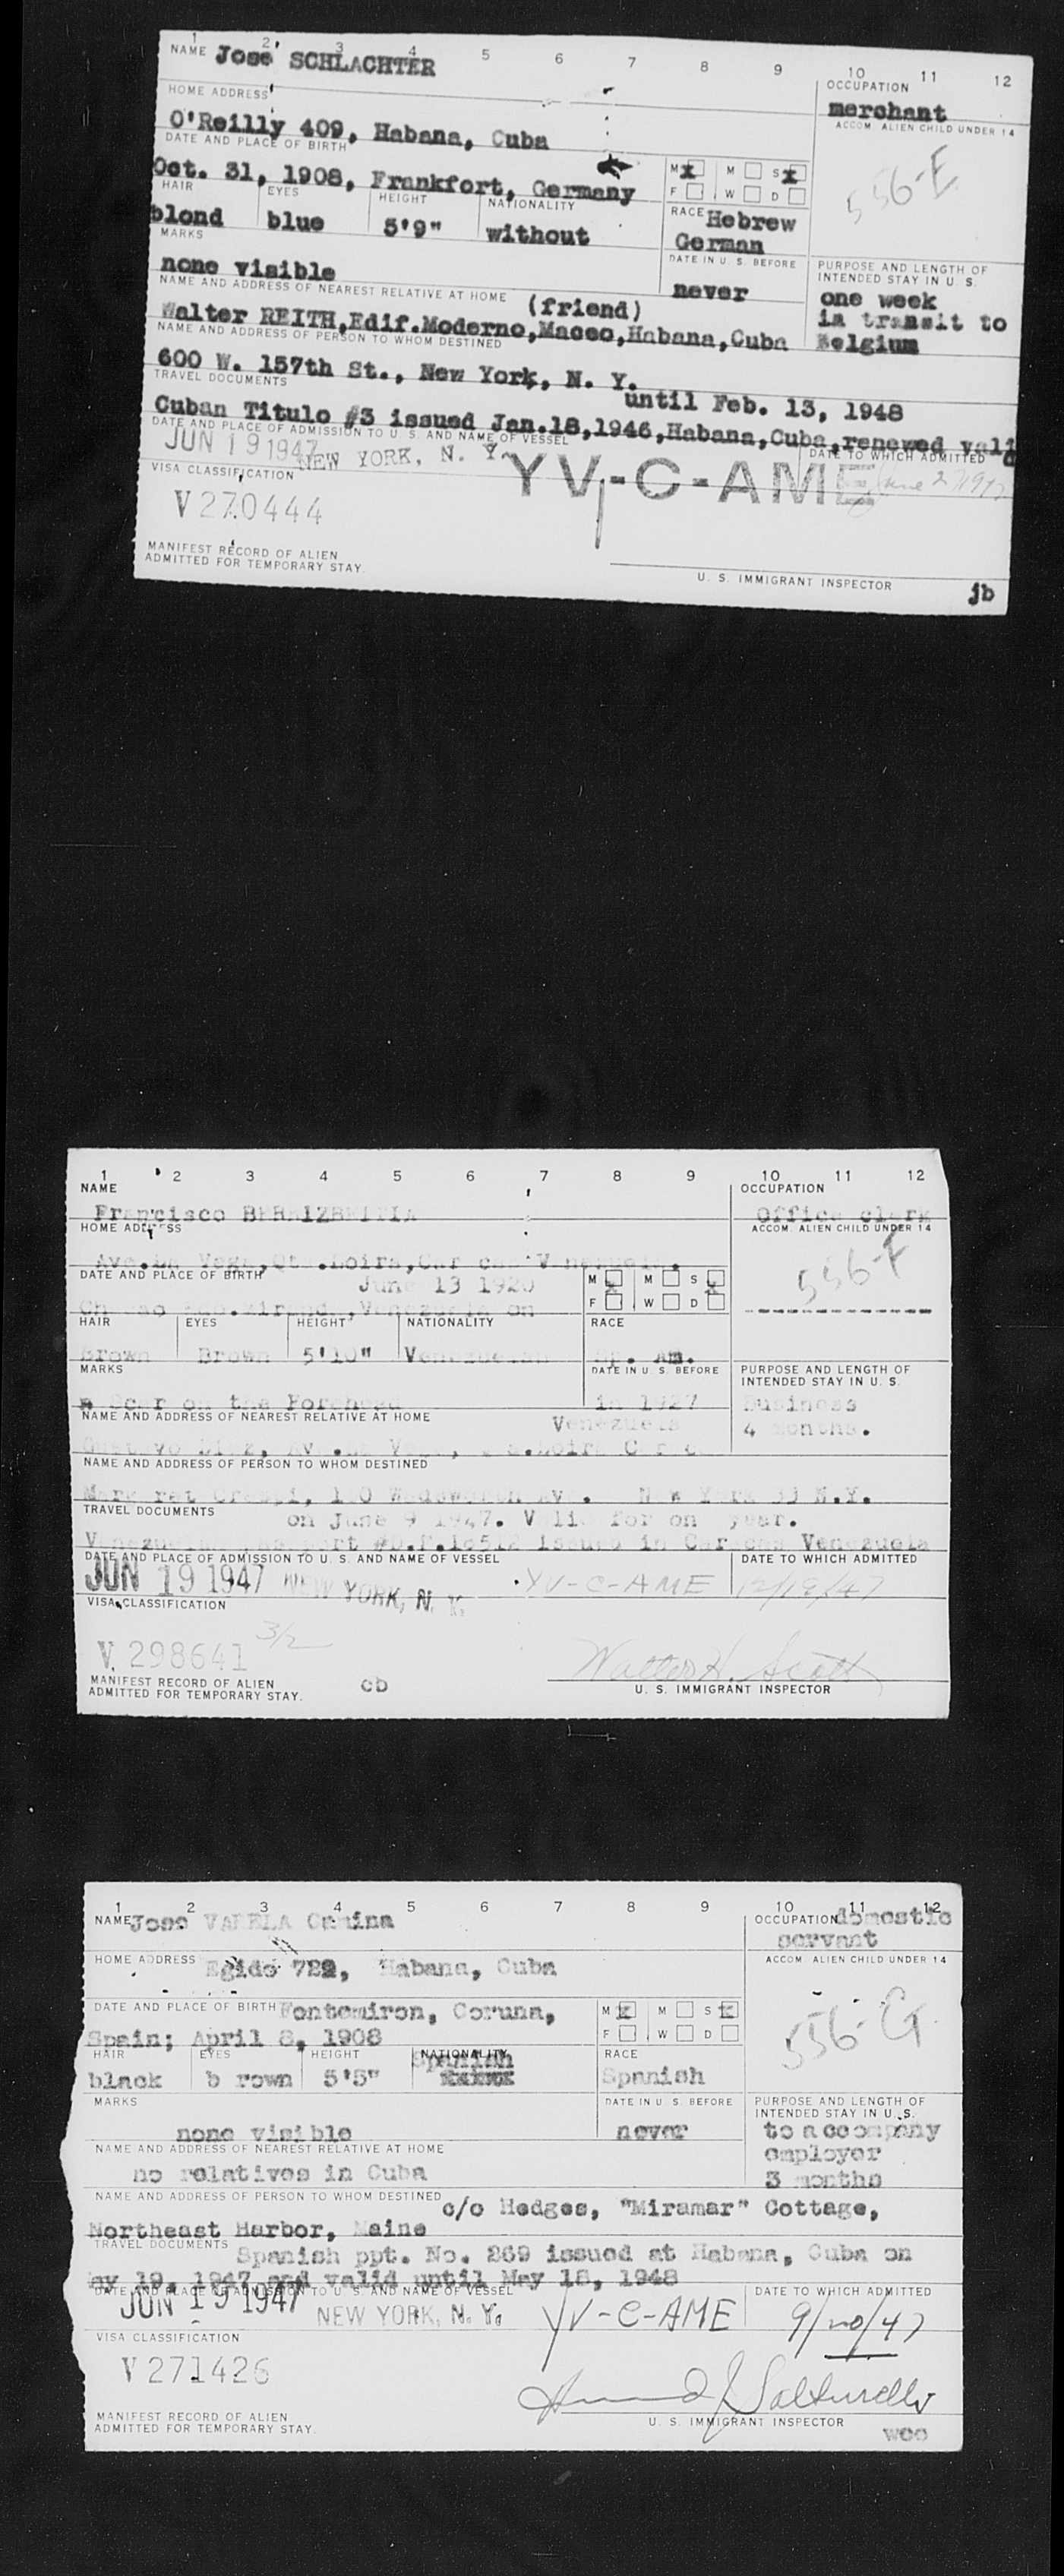 1 2 3 4 5 6 7 8 9 10 11 12
NAME José SCHLACHTER
OCCUPATION
merchant
HOME ADDRESS
O'Reilly 409, Habana, Cuba
ACCOM. ALIEN CHILD UNDER 14
556-E
DATE AND PLACE OF BIRTH
Oct. 31, 1908, Frankfort, Germany
M x M S x
F W D
HAIR EYES HEIGHT NATIONALITY
blond blue 5'9" without
RACE Hebrew
German
MARKS
none visible
DATE IN U. S. BEFORE
never
PURPOSE AND LENGTH OF
INTENDED STAY IN U. S.
one week
in transit to
Belgium
NAME AND ADDRESS OF NEAREST RELATIVE AT HOME (friend)
Walter REITH,Edif.Moderno,Maceo,Habana,Cuba
NAME AND ADDRESS OF PERSON TO WHOM DESTINED
600 W. 157th St., New York, N. Y.
TRAVEL DOCUMENTS until Feb. 13, 1948
Cuban Titulo #3 issued Jan.18,1946,Habana,Cuba,renewed valid
DATE AND PLACE OF ADMISSION TO U. S. AND NAME OF VESSEL
DATE TO WHICH ADMITTED
JUN 19 1947 NEW YORK, N. Y. YV-C-AME June 27/1947
VISA CLASSIFICATION
V 270444
MANIFEST RECORD OF ALIEN
ADMITTED FOR TEMPORARY STAY.
U. S. IMMIGRANT INSPECTOR
jb
1 2 3 4 5 6 7 8 9 10 11 12
NAME
Francisco BERRIZBEITIA
OCCUPATION
Office clerk
HOME ADDRESS
Ave.La Vega,Qta.Loira,Caracas Venezuela.
ACCOM. ALIEN CHILD UNDER 14
556-F
DATE AND PLACE OF BIRTH June 13 1920
M x M S x
F W D
HAIR EYES HEIGHT NATIONALITY
Brown Brown 5'10" Venezuelan
RACE
Sp. Am.
MARKS
a Scar on the Forehead
DATE IN U. S. BEFORE
in 1927
PURPOSE AND LENGTH OF
INTENDED STAY IN U. S.
Business
4 months.
NAME AND ADDRESS OF NEAREST RELATIVE AT HOME Venezuela
NAME AND ADDRESS OF PERSON TO WHOM DESTINED
TRAVEL DOCUMENTS on June 9 1947. Valid for on year.
Venezuelan Passport #D.F.16512 issued in Caracas Venezuela
DATE AND PLACE OF ADMISSION TO U. S. AND NAME OF VESSEL
DATE TO WHICH ADMITTED
JUN 19 1947 NEW YORK, N. Y. YV-C-AME 12/19/47
VISA CLASSIFICATION
3/2
V. 298641
MANIFEST RECORD OF ALIEN
ADMITTED FOR TEMPORARY STAY.
cb
Walter H. Scott
U. S. IMMIGRANT INSPECTOR
1 2 3 4 5 6 7 8 9 10 11 12
NAME Jose VARELA Camina
OCCUPATION domestic
servant
HOME ADDRESS Egido 722, Habana, Cuba
ACCOM. ALIEN CHILD UNDER 14
556-G
DATE AND PLACE OF BIRTH Fontemiron, Coruna,
Spain; April 8, 1908
M x M S x
F W D
HAIR EYES HEIGHT NATIONALITY
Spanish
black b rown 5'5"
RACE
Spanish
MARKS
none visible
DATE IN U. S. BEFORE
never
PURPOSE AND LENGTH OF
INTENDED STAY IN U. S.
to accompany
employer
3 months
NAME AND ADDRESS OF NEAREST RELATIVE AT HOME
no relatives in Cuba
NAME AND ADDRESS OF PERSON TO WHOM DESTINED c/o Hedges, "Miramar" Cottage,
Northeast Harbor, Maine
TRAVEL DOCUMENTS Spanish ppt. No. 269 issued at Habana, Cuba on
May 19, 1947 and valid until May 18, 1948
DATE AND PLACE OF ADMISSION TO U. S. AND NAME OF VESSEL
DATE TO WHICH ADMITTED
JUN 19 1947 NEW YORK, N. Y. YV-C-AME 9/20/47
VISA CLASSIFICATION
V 271426
MANIFEST RECORD OF ALIEN
ADMITTED FOR TEMPORARY STAY.
U. S. IMMIGRANT INSPECTOR
woo